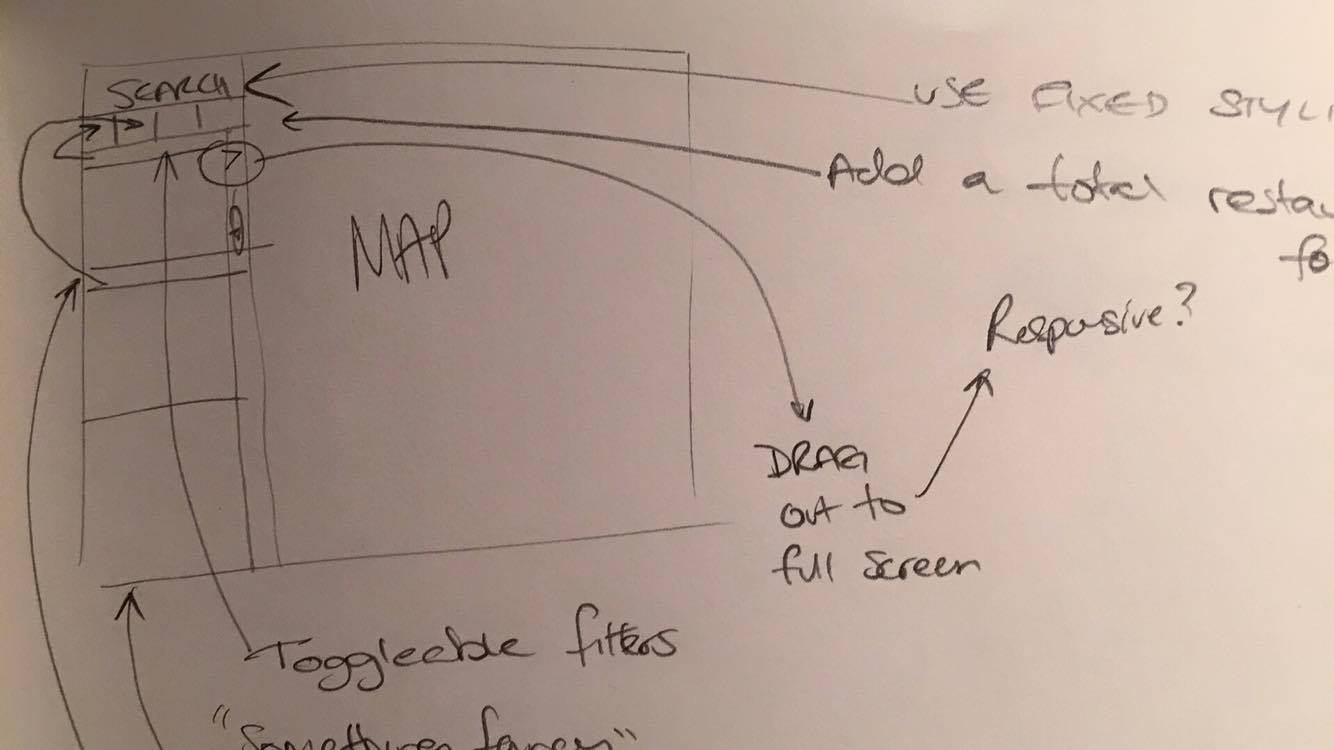 SEARCH
USE FIXED STYLI
Add a total restau
fo
MAP
Responsive?
DRAG
out to
full screen
Toggleable filters
"Something fancy"